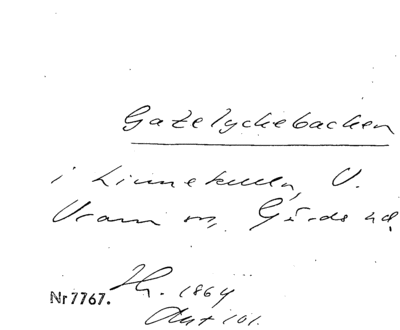 Gatelyckebacken
i Linnekulla, V.
Vram sn, Gärds hd.
Nr 7767. Hs. 1864
Akt 101.